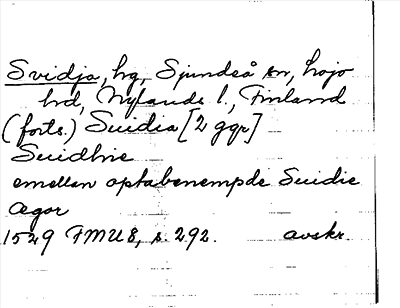 Svidja, hg, Sjundeå sn, Lojo
hd, Nylands l., Finland
(forts.) Suidia [2 ggr]
Suidhie
emellan optabenempde Suidie
ægor
1529 FMU 8, s. 292. avskr.